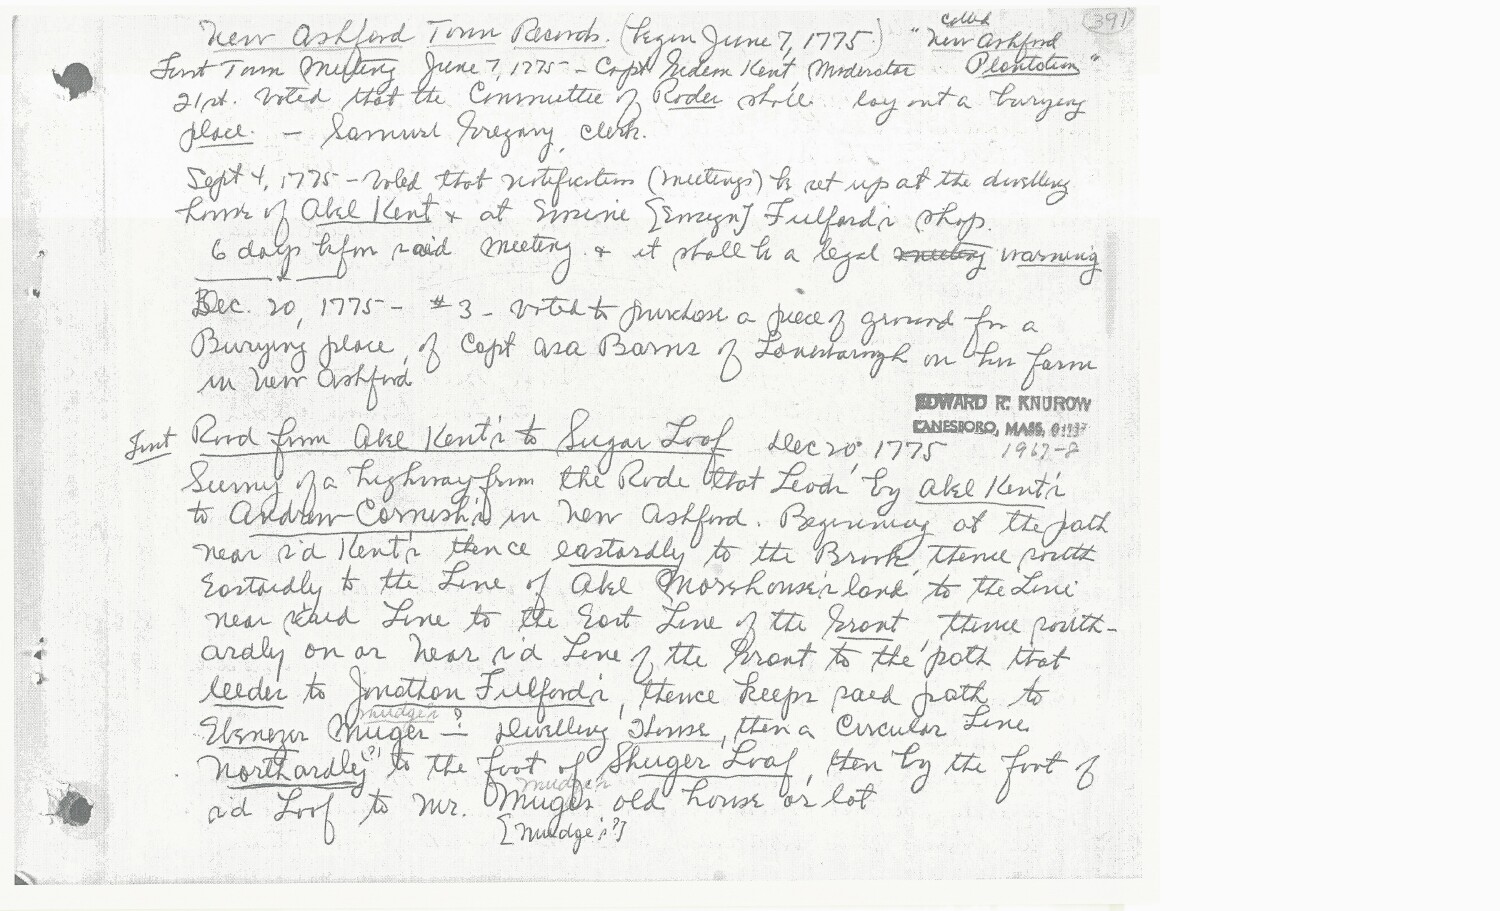 391
New Ashford Town Records. (began June 7, 1775.) "called New Ashford Plantation"
First Town Meeting June 7, 1775 - Capt Gedem Kent, Moderator
21st. Voted that the Committee of Rodes shall lay out a burying
place. - Samuel Gregory, Clerk.
Sept 4, 1775 - Voted that notifications (meetings) be set up at the dwelling
house of Abel Kent & at Ensine [Ensign] Fulford's shop.
6 days before said meeting & it shall be a legal meeting warning
Dec. 20, 1775 - #3 - Voted to purchase a piece of ground for a
Burying place, of Capt Asa Barns of Lanesborough on his farm
in New Ashford
EDWARD R. KNUROW
LANESBORO, MASS. 01237
1967-8
First Road from Abel Kent's to Sugar Loaf Dec 20, 1775
Survey of a highway from the Rode that Leads by Abel Kent's
to Andrew Cornish's in New Ashford. Beginning at the path
near s'd Kent's thence eastardly to the Brook, thence south
Eastardly to the Line of Abel Morehouse's land to the Line
near said Line to the East Line of the Grant, thence south-
ardly on or near s'd Line of the Grant to the path that
leedes to Jonathan Fulford's, thence keeps said path to
mudge's
Ebenezer Muger - ? Dwelling House, then a Circular Line
Northardly (?) to the foot of Shuger Loaf, then by the foot of
mudge's
s'd Loof to Mr. Muges old house or lot
[Mudge's?]